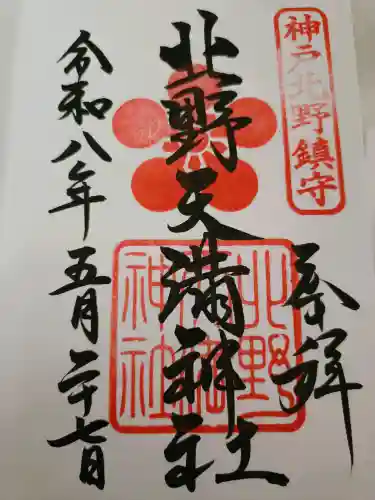 神戸北野鎮守
奉拝
北野天満神社
北野天満神社
令和八年五月二十七日